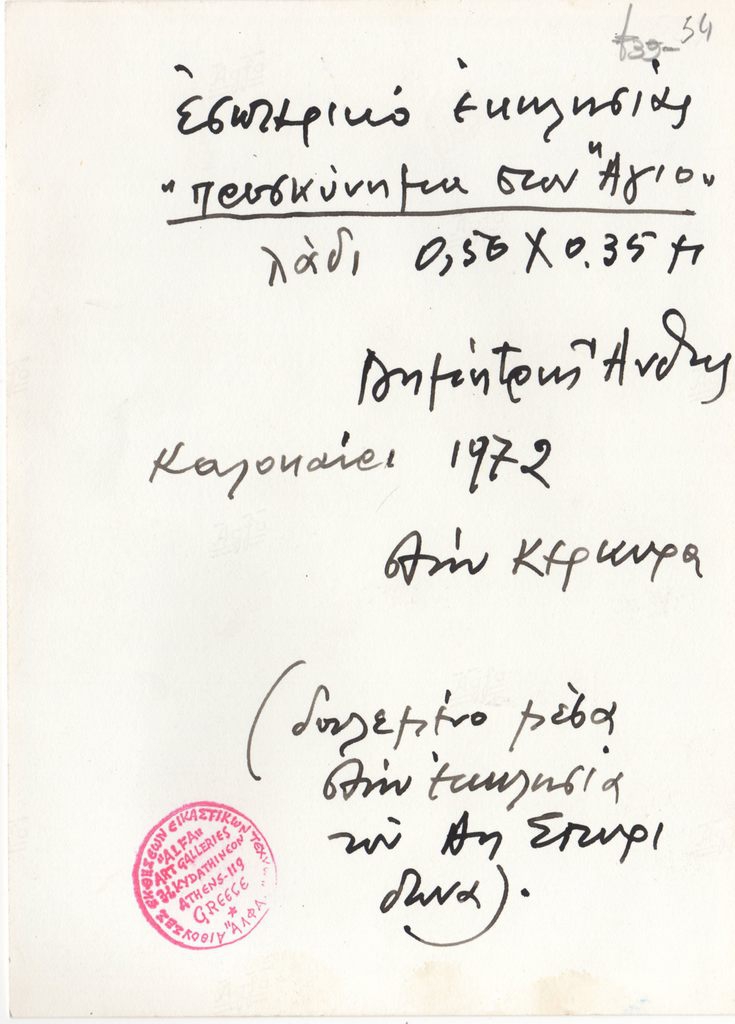 54
ἐσωτερικό ἐκκλησίας
"προσκύνημα στον Ἅγιο"
λάδι 0,50 X 0.35 μ
Δημήτρης Ἀνθης
Καλοκαίρι 1972
στήν Κέρκυρα
(δουλεμένο μέσα
στήν ἐκκλησία
τοῦ Αη Σπυρι
δωνα).
ΑΙΘΟΥΣΕΣ ΕΚΘΕΣΕΩΝ ΕΙΚΑΣΤΙΚΩΝ ΤΕΧΝΩΝ "ΑΛΦΑ"
"ALFA"
ART GALLERIES
32 KYDATHINEON
ATHENS-119
GREECE